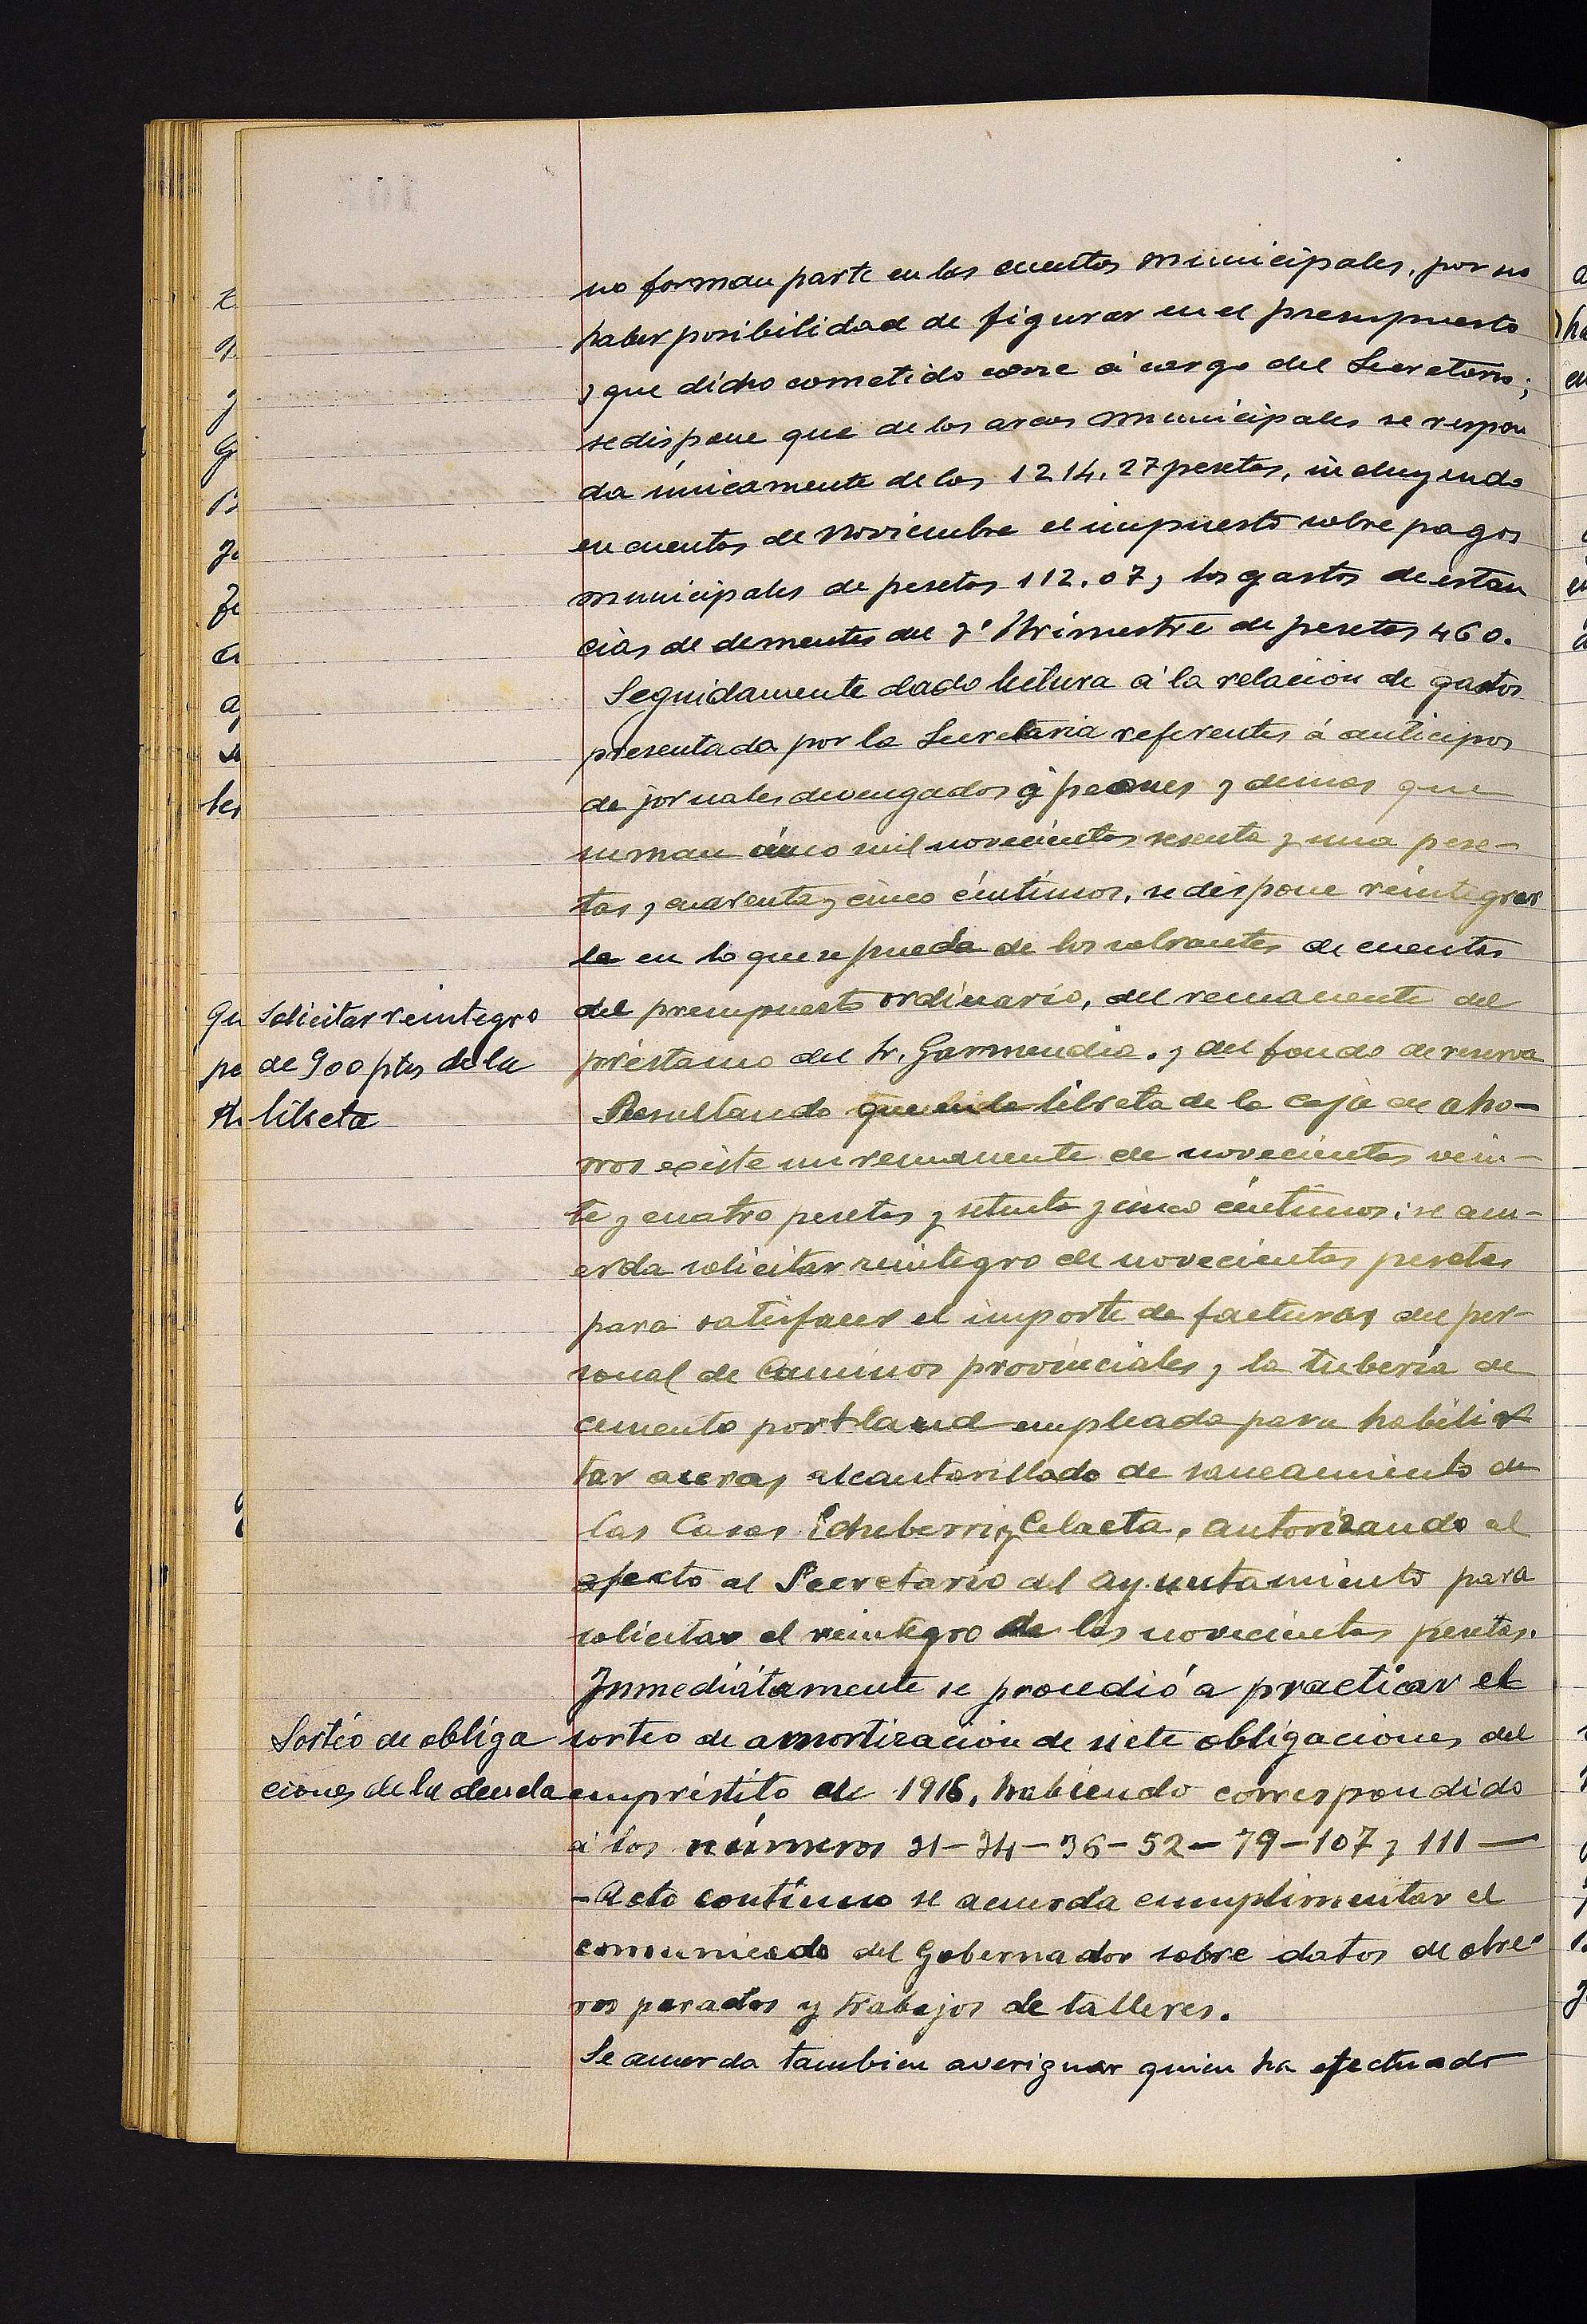 no forman parte en las cuentas municipales, por no
haber posibilidad de figurar en el presupuesto
y que dicho cometido corre á cargo del Secretario;
se dispone que de las arcas municipales se respon
da únicamente de las 1214,27 pesetas, incluyendo
en cuentas de Noviembre el impuesto sobre pagos
municipales de pesetas 112.07, los gastos de estan
cias de dementes del Trimestre de pesetas 460.
Seguidamente dado lectura á la relación de gastos
presentada por la Secretaria referentes á anticipos
de jornales devengados á peones y demas que
suman cinco mil novecientas sesenta y una pese-
tas y cuarenta y cinco céntimos, se dispone reintegrar
le en lo que se pueda de los sobrantes de cuentas
del presupuesto ordinario, del remanente del
Solicitar reintegro
de 900 ptas de la
libreta
préstamo del Sr. Garmendia. y del fondo de reserva
Resultando que en la libreta de la caja de aho-
rros existe un remanente de novecientas vein-
te y cuatro pesetas y setenta y cinco céntimos; se acu-
erda solicitar reintegro de novecientas pesetas
para satisfacer el importe de facturas del per-
sonal de Caminos provinciales y la tubería de
cemento portland empleada para habili
tar aceras alcantarillado de saneamiento de
las Casas Echeberri y Celaeta, autorizando al
efecto al Secretario del Ayuntamiento para
solicitar el reintegro de las novecientas pesetas.
Inmediatamente se procedió a practicar el
Sorteo de obliga
ciones de la deuda
sorteo de amortización de siete obligaciones del
empréstito de 1916, habiendo correspondido
á los números 31-34-36-52-79-107 y 111 —
- Acto continuo se acuerda cumplimentar el
comunicado del Gobernador sobre datos de obre
ros parados y trabajos de talleres.
Se acuerda tambien averiguar quien ha efectuado